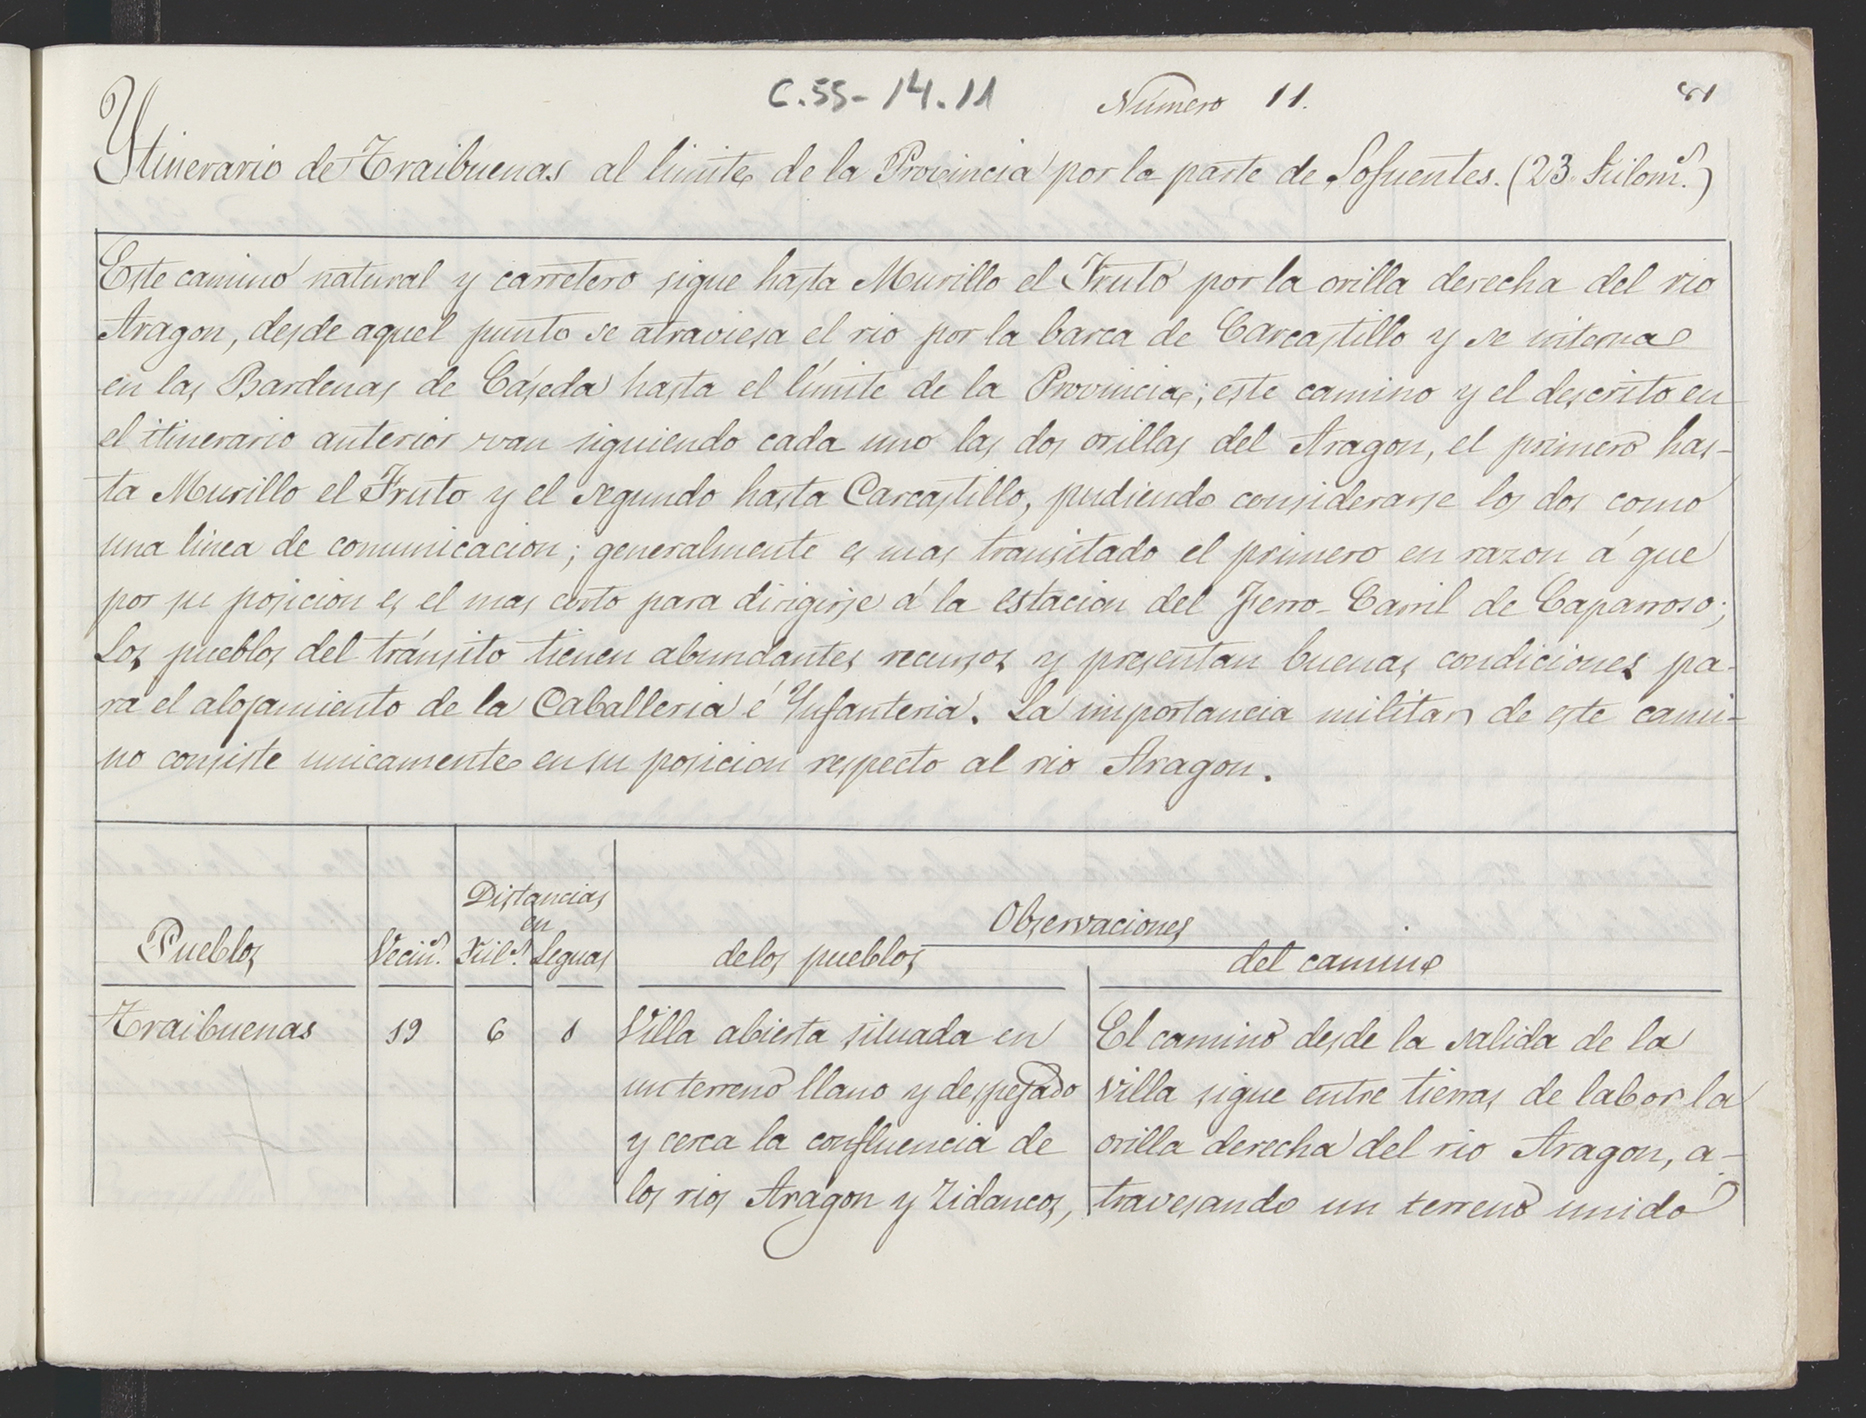 C.55-14.11 Número 11. 81
Ytinerario de Traibuenas al limite de la Provincia por la parte de Sofuentes. (23 Kilom.s)
Este camino natural y carretero sigue hasta Murillo el Fruto por la orilla derecha del rio
Aragon, desde aquel punto se atraviesa el rio por la barca de Carcastillo y se interna
en las Bardenas de Cáseda hasta el límite de la Provincia; este camino y el descrito en
el itinerario anterior van siguiendo cada uno las dos orillas del Aragon, el primero has-
ta Murillo el Fruto y el segundo hasta Carcastillo, pudiendo considerarse los dos como
una linea de comunicacion; generalmente es mas transitado el primero en razon á que
por su posicion es el mas corto para dirigirse á la estacion del Ferro-Carril de Caparroso;
Los pueblos del tránsito tienen abundantes recursos y presentan buenas condiciones pa-
ra el alojamiento de la Caballeria é Ynfanteria. La importancia militar de este cami-
no consiste unicamente en su posicion respecto al rio Aragon.
Distancias
en
Observaciones
Pueblos Vecin.s Kil.s Leguas de los pueblos del camino
Traibuenas 19 6 1 Villa abierta situada en El camino desde la salida de la
un terreno llano y despejado villa sigue entre tierras de labor la
y cerca la confluencia de orilla derecha del rio Aragon, a-
los rios Aragon y Zidancos, travesando un terreno unido